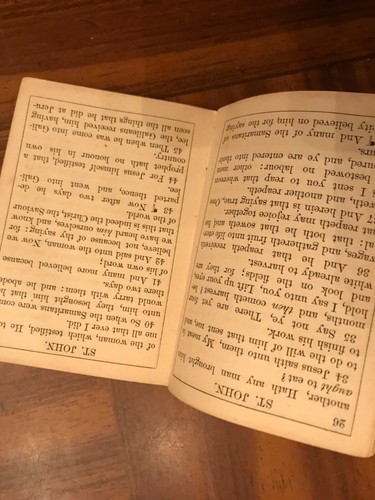 26 ST. JOHN.
another, Hath any man brought him
aught to eat?
34 Jesus saith unto them, My meat is
to do the will of him that sent me, and
to finish his work.
35 Say not ye, There are yet
months, and then cometh harvest?
hold, I say unto you, Lift up your eyes
and look on the fields; for they are
white already to harvest.
36 And he that reapeth
wages, and gathereth fruit unto life
that both he that soweth and
reapeth may rejoice together.
And herein is that saying true, One
and another reapeth.
I sent you to reap that whereon
no labour: other men
and ye are entered into their
¶ And many of the Samaritans
believed on him for the saying
ST. JOHN.
of the woman, which testified, He told
me all that ever I did.
40 So when the Samaritans were come
unto him, they besought him that he
would tarry with them: and he abode
there two days.
41 And many more believed because
of his own word;
42 And said unto the woman, Now we
believe, not because of thy saying: for
we have heard him ourselves, and know
that this is indeed the Christ, the Saviour
of the world.
43 ¶ Now after two days he de-
parted thence, and went into Gali-
lee.
44 For Jesus himself testified, that a
prophet hath no honour in his own
country.
45 Then when he was come into Gali-
lee, the Galileans received him, having
seen all the things that he did at Jeru-